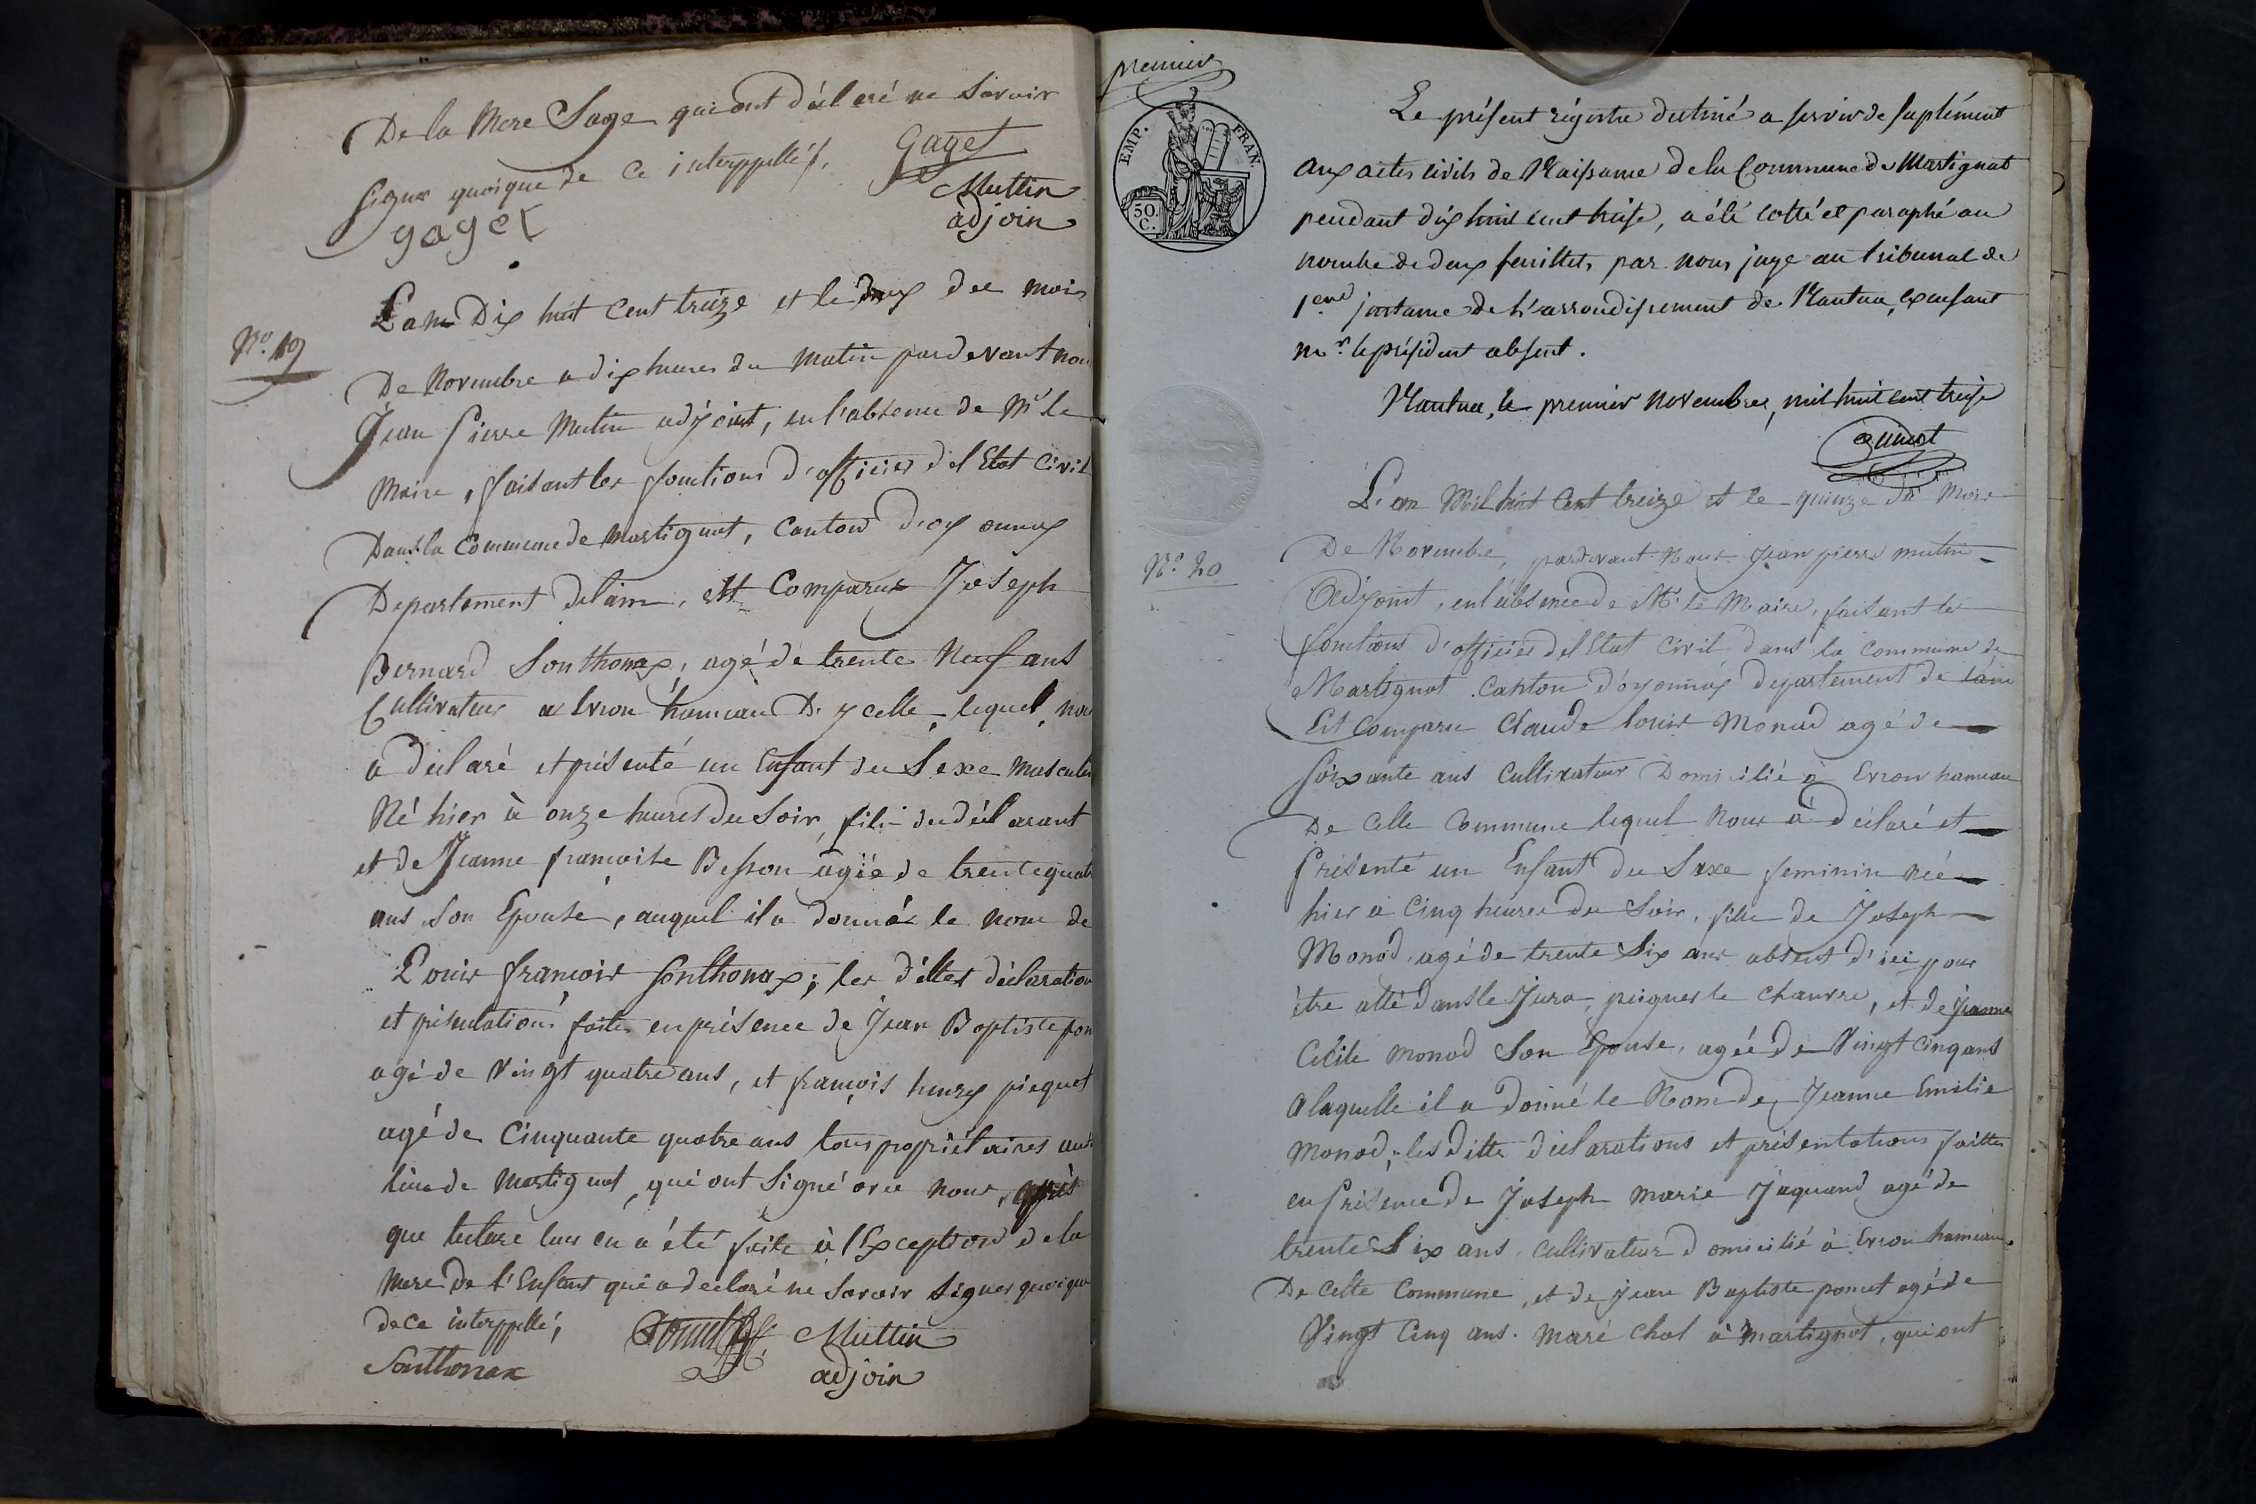 De la Mere Sage qui ont déclaré ne Savoir
Signer quoique de ce interppellés.
Gaget
gaget
Muttin
adjoin
N.º 19
L'an Dix huit Cent treize et le deux du mois
De Novembre a dix heures du Matin pardevant nou
Jean Pierre Mutin adjoint, en l'absence de Mr le
Maire, faisant les fonctions d'officier del Etat Civil
Dans la Commune de Martignat, Canton d'oyonnax
Departement delain, est Comparut Joseph
Bernard Sonthonax, agé de trente Neuf ans
Cultivateur a Evron hameau D'ycelle, lequel nou
a déclaré et présenté un Enfant du Sexe masculin
Né hier à onze heures du Soir, fils du déclarant
et de Jeanne francoise Besson agée de trente quatr
ans Son Epouse, auquel il a donné le nom de
Louis francois Sonthonax; les dittes déclaration
et présentations faites en présence de Jean Baptiste pon
agé de Vingt quatre ans, et françois henry picquet
agé de Cinquante quatre ans tous propriétaires au
lieu de Martignat, qui ont Signé avec nous, après
que lecture leur en a été faite à l'Exception de la
Mere de l'Enfant qui a déclaré ne Savoir Signer quoique
de ce interppellé,
Muttin
adjoin
Sonthonax
premier
EMP. FRAN.
50. C.
Le présent régistre destiné a servir de suplément
aux actes civils de Naissance de la Commune de Martignat
pendant dix huit cent treise, a été cotté et paraphé au
nombre de deux feuillets, par nous juge au tribunal de
1ere instance de l'arrondissement de Nantua, exausant
mr. le président absent.
Nantua, le premier novembre, mil huit cent treise
N.º 20
L'an Mil huit Cent treize et le quinze du Mois
De Novembre, pardevant Nous Jean pierre mutin
Adjoint, en l'absence de Mr le Maire, faisant les
fonctions d'officier del Etat Civil dans la Commune de
Martignat Canton d'oyonnax departement de lain
Est Comparu Claude louis Monod agé de
Soixante ans Cultivateur Domicilié à Evron hameau
De Cette Commune lequel Nous à déclaré et
Présenté un Enfant du Sexe feminin née
hier à Cinq heures du Soir, fille de Joseph
Monod agé de trente Six ans absent d'ici pour
être allé dans le Jura, peigner le chanvre, et de jeanne
Cécile monod Son Epouse, agée de Vingt Cinq ans
A laquelle il a donné le Nom de Jeanne Emilie
Monod, les ditte déclarations et présentations faittes
en Présence de Joseph Marie Jaquand agé de
trente Six ans, Cultivateur domicilié à Evron hameau
De Cette Commune, et de jean Baptiste poncet agé de
Vingt Cinq ans. Maréchal à Martignat, qui ont